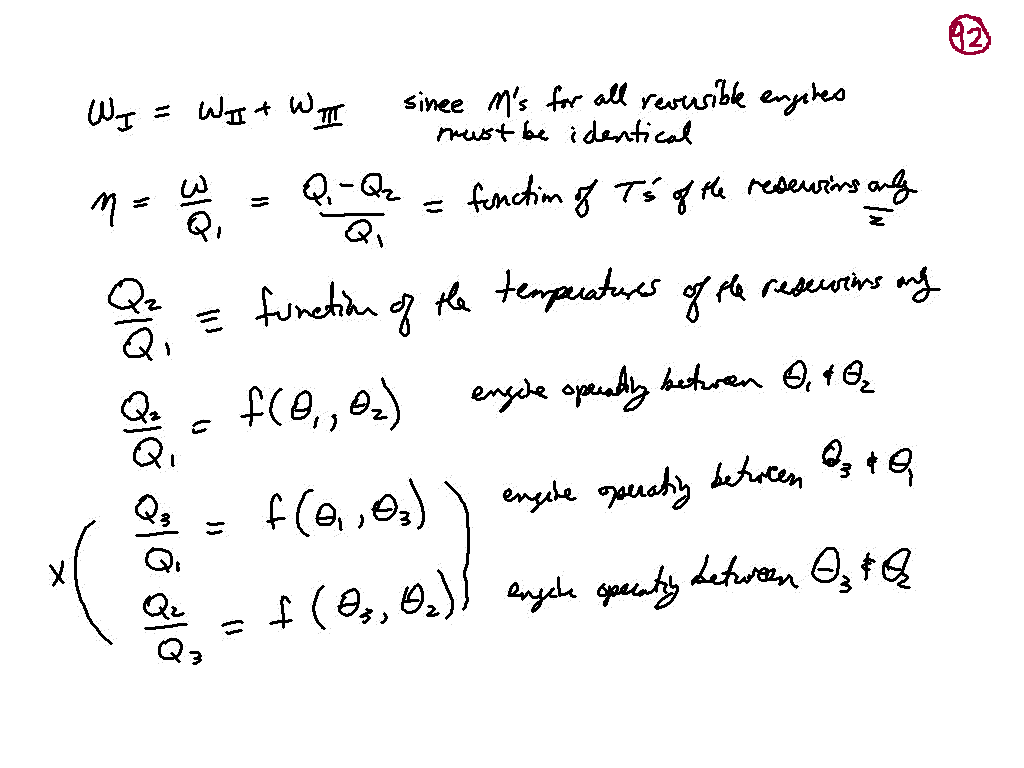 92
W_I = W_II + W_III since η's for all reversible engines
must be identical
η = W/Q₁ = (Q₁-Q₂)/Q₁ = function of T's of the reservoirs only
Q₂/Q₁ ≡ function of the temperatures of the reservoirs only
Q₂/Q₁ = f(θ₁, θ₂) engine operating between θ₁ & θ₂
Q₃/Q₁ = f(θ₁, θ₃) engine operating between θ₃ & θ₁
x( Q₂/Q₃ = f(θ₃, θ₂)) engine operating between θ₃ & θ₂